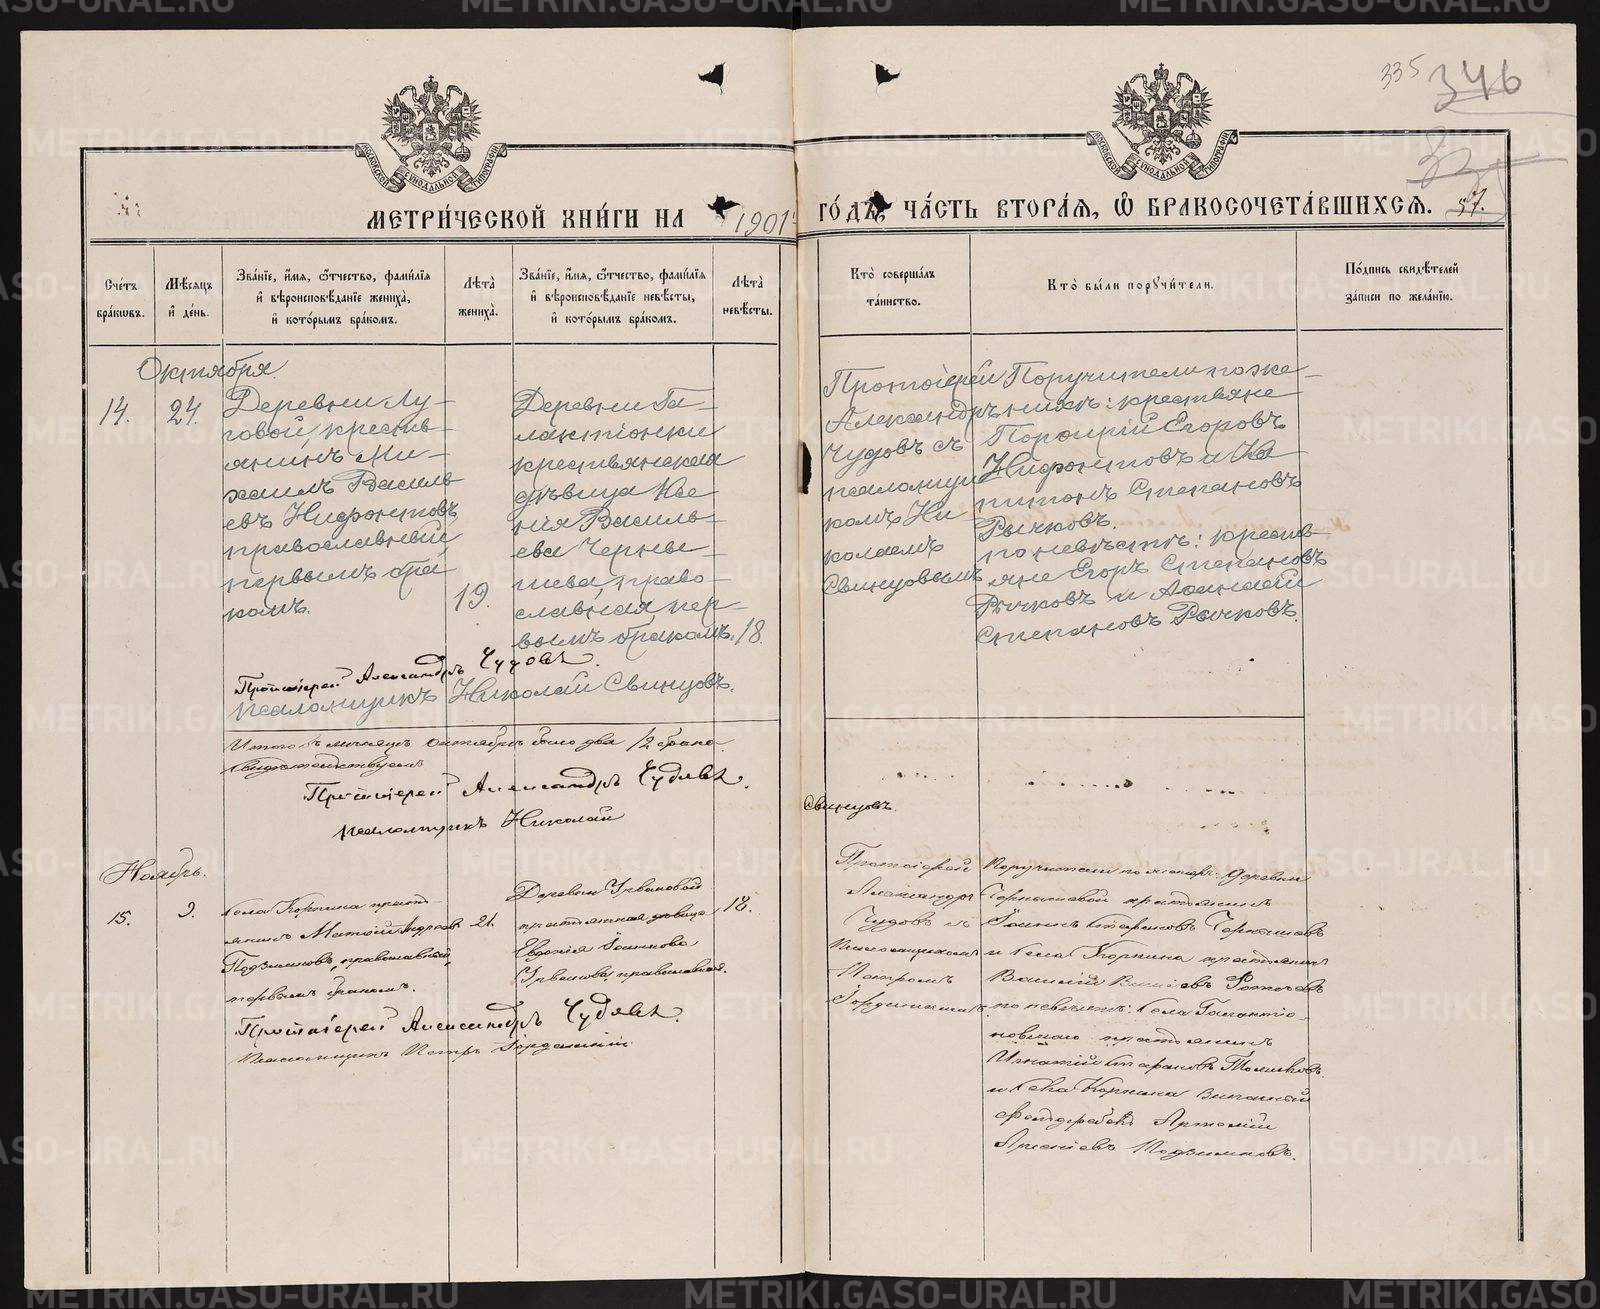 335 346
МЕТРИ́ЧЕСКОЙ КНИ́ГИ НА 1901 ГО́ДЪ, ЧА́СТЬ ВТОРА́Я, Ѡ БРАКОСОЧЕТА́ВШИХСЯ. 57.
Сче́тъ бра́ковъ.
Мѣ́сяцъ и де́нь.
Зва́ніе, и́мя, ѻ́тчество, фами́лія и вѣроисповѣ́даніе жениха̀, и кото́рымъ бра́комъ.
Лѣ́та жениха̀.
Зва́ніе, и́мя, ѻ́тчество, фами́лія и вѣроисповѣ́даніе невѣ́сты, и кото́рымъ бра́комъ.
Лѣ́та невѣ́сты.
Кто̀ соверша́лъ та́инство.
Кто̀ бы́ли поручи́тели.
По́дпись свидѣ́телей за́писи по жела́нію.
Октября
14.
24.
Деревни Лу-
говой крестья-
янинъ Ми-
хаилъ Василь
евъ Нифонтовъ,
православный
первымъ бра
комъ.
19.
Деревни Га-
лактіонки
крестьянская
дѣвица Ксе
нія Василь-
ева Черны-
шева, право-
славная, пер-
вымъ бракомъ.
18.
Протоіерей
Александръ
Чудовъ съ
псаломщи
комъ Ни-
колаемъ
Свинцовымъ
Поручители по же-
нихѣ: крестьяне
Порфирій Егоровъ
Нифонтовъ и Ка
питонъ Степановъ
Рычковъ.
по невѣстѣ: кресть
яне Егоръ Степановъ
Рычковъ и Аѳанасій
Степановъ Рычковъ.
Протоіерей Александръ Чудовъ.
Псаломщикъ Николай Свинцовъ.
Итого въ мѣсяцѣ октябрѣ было два /2 брака
Свидѣтельствуемъ
Протоіерей Александръ Чудовъ.
Псаломщикъ Николай Свинцовъ.
Ноябрь.
15.
9.
Села Корнина кресть-
янинъ Матѳій Андреевъ
Подзимковъ, православный,
первымъ бракомъ.
21.
Деревни Урвановой
крестьянская дѣвица
Евдокія Іоаннова
Урванова, православная.
18.
Протоіерей
Александръ
Чудовъ съ
Псаломщикомъ
Петромъ
Іорданскимъ
Поручители по женихѣ: деревни
крестьянинъ
Іоаннъ Стефановъ Чернышевъ
и села Корнина крестьянинъ
по невѣстѣ: Села Галактіо-
новскаго крестьянинъ
Игнатій Стефановъ
и села Корнина запасный
Подзимковъ.
Протоіерей Александръ Чудовъ.
Псаломщикъ Петръ Іорданскій